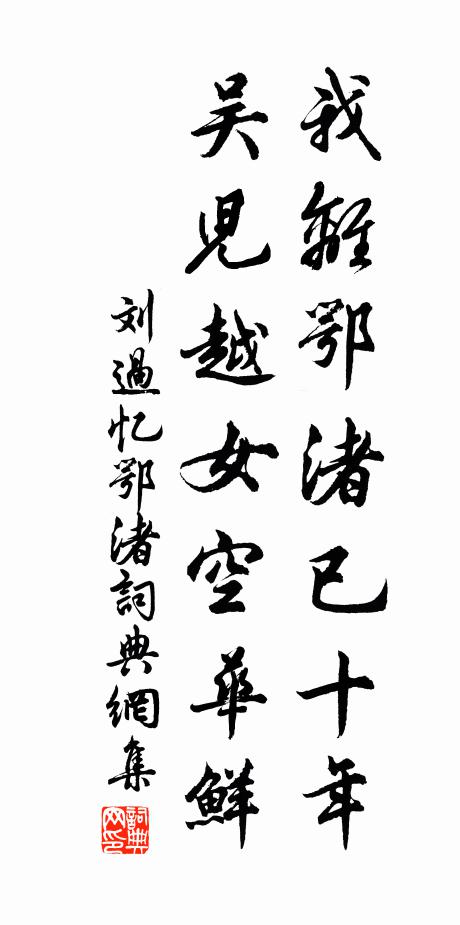 我離鄂渚已十年
吳兒越女空華鮮
刘過忆鄂渚詞典網集
詞典网印